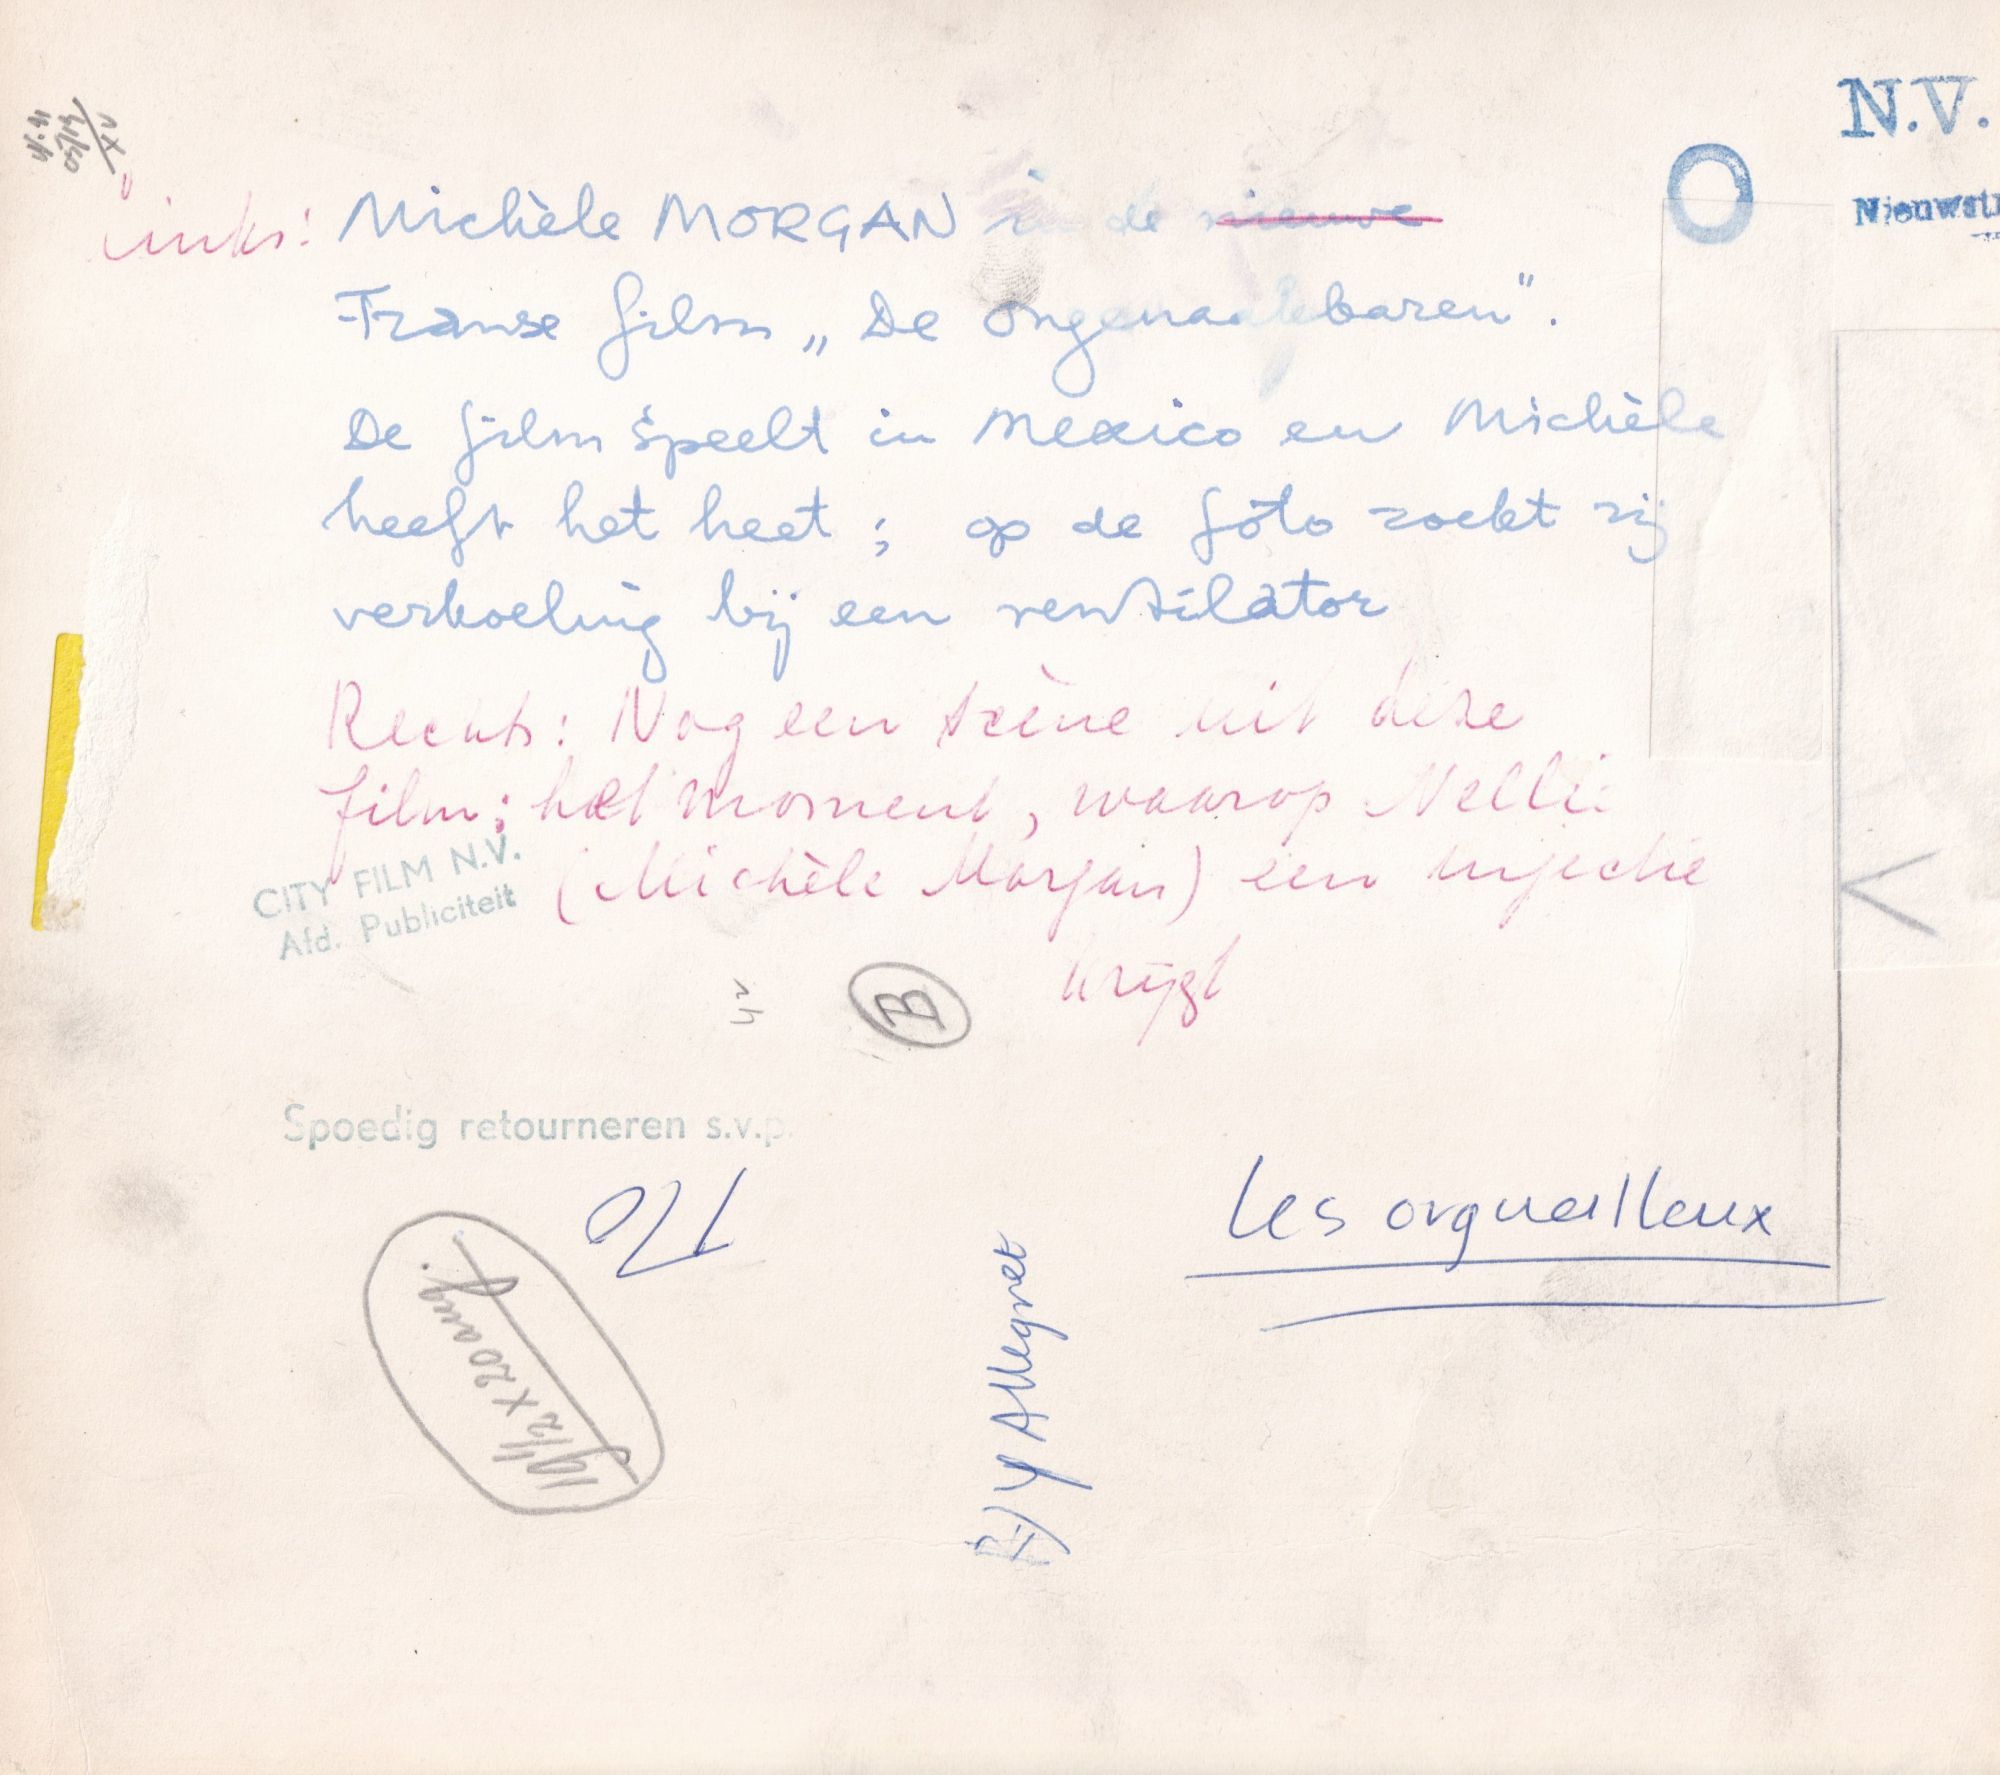 N.V.
Nieuwstr
Links: Michèle MORGAN in de nieuwe
Franse film „De ongenaakbaren".
De film speelt in Mexico en Michèle
heeft het heet; op de foto zoekt zij
verkoeling bij een ventilator
Rechts: Nog een scène uit deze
film: het moment, waarop Nellie
(Michèle Morgan) een injectie
krijgt
CITY FILM N.V.
Afd. Publiciteit
B
Spoedig retourneren s.v.p.
Les orgueilleux
Y Allegret
19 1/2 x 20 aug.